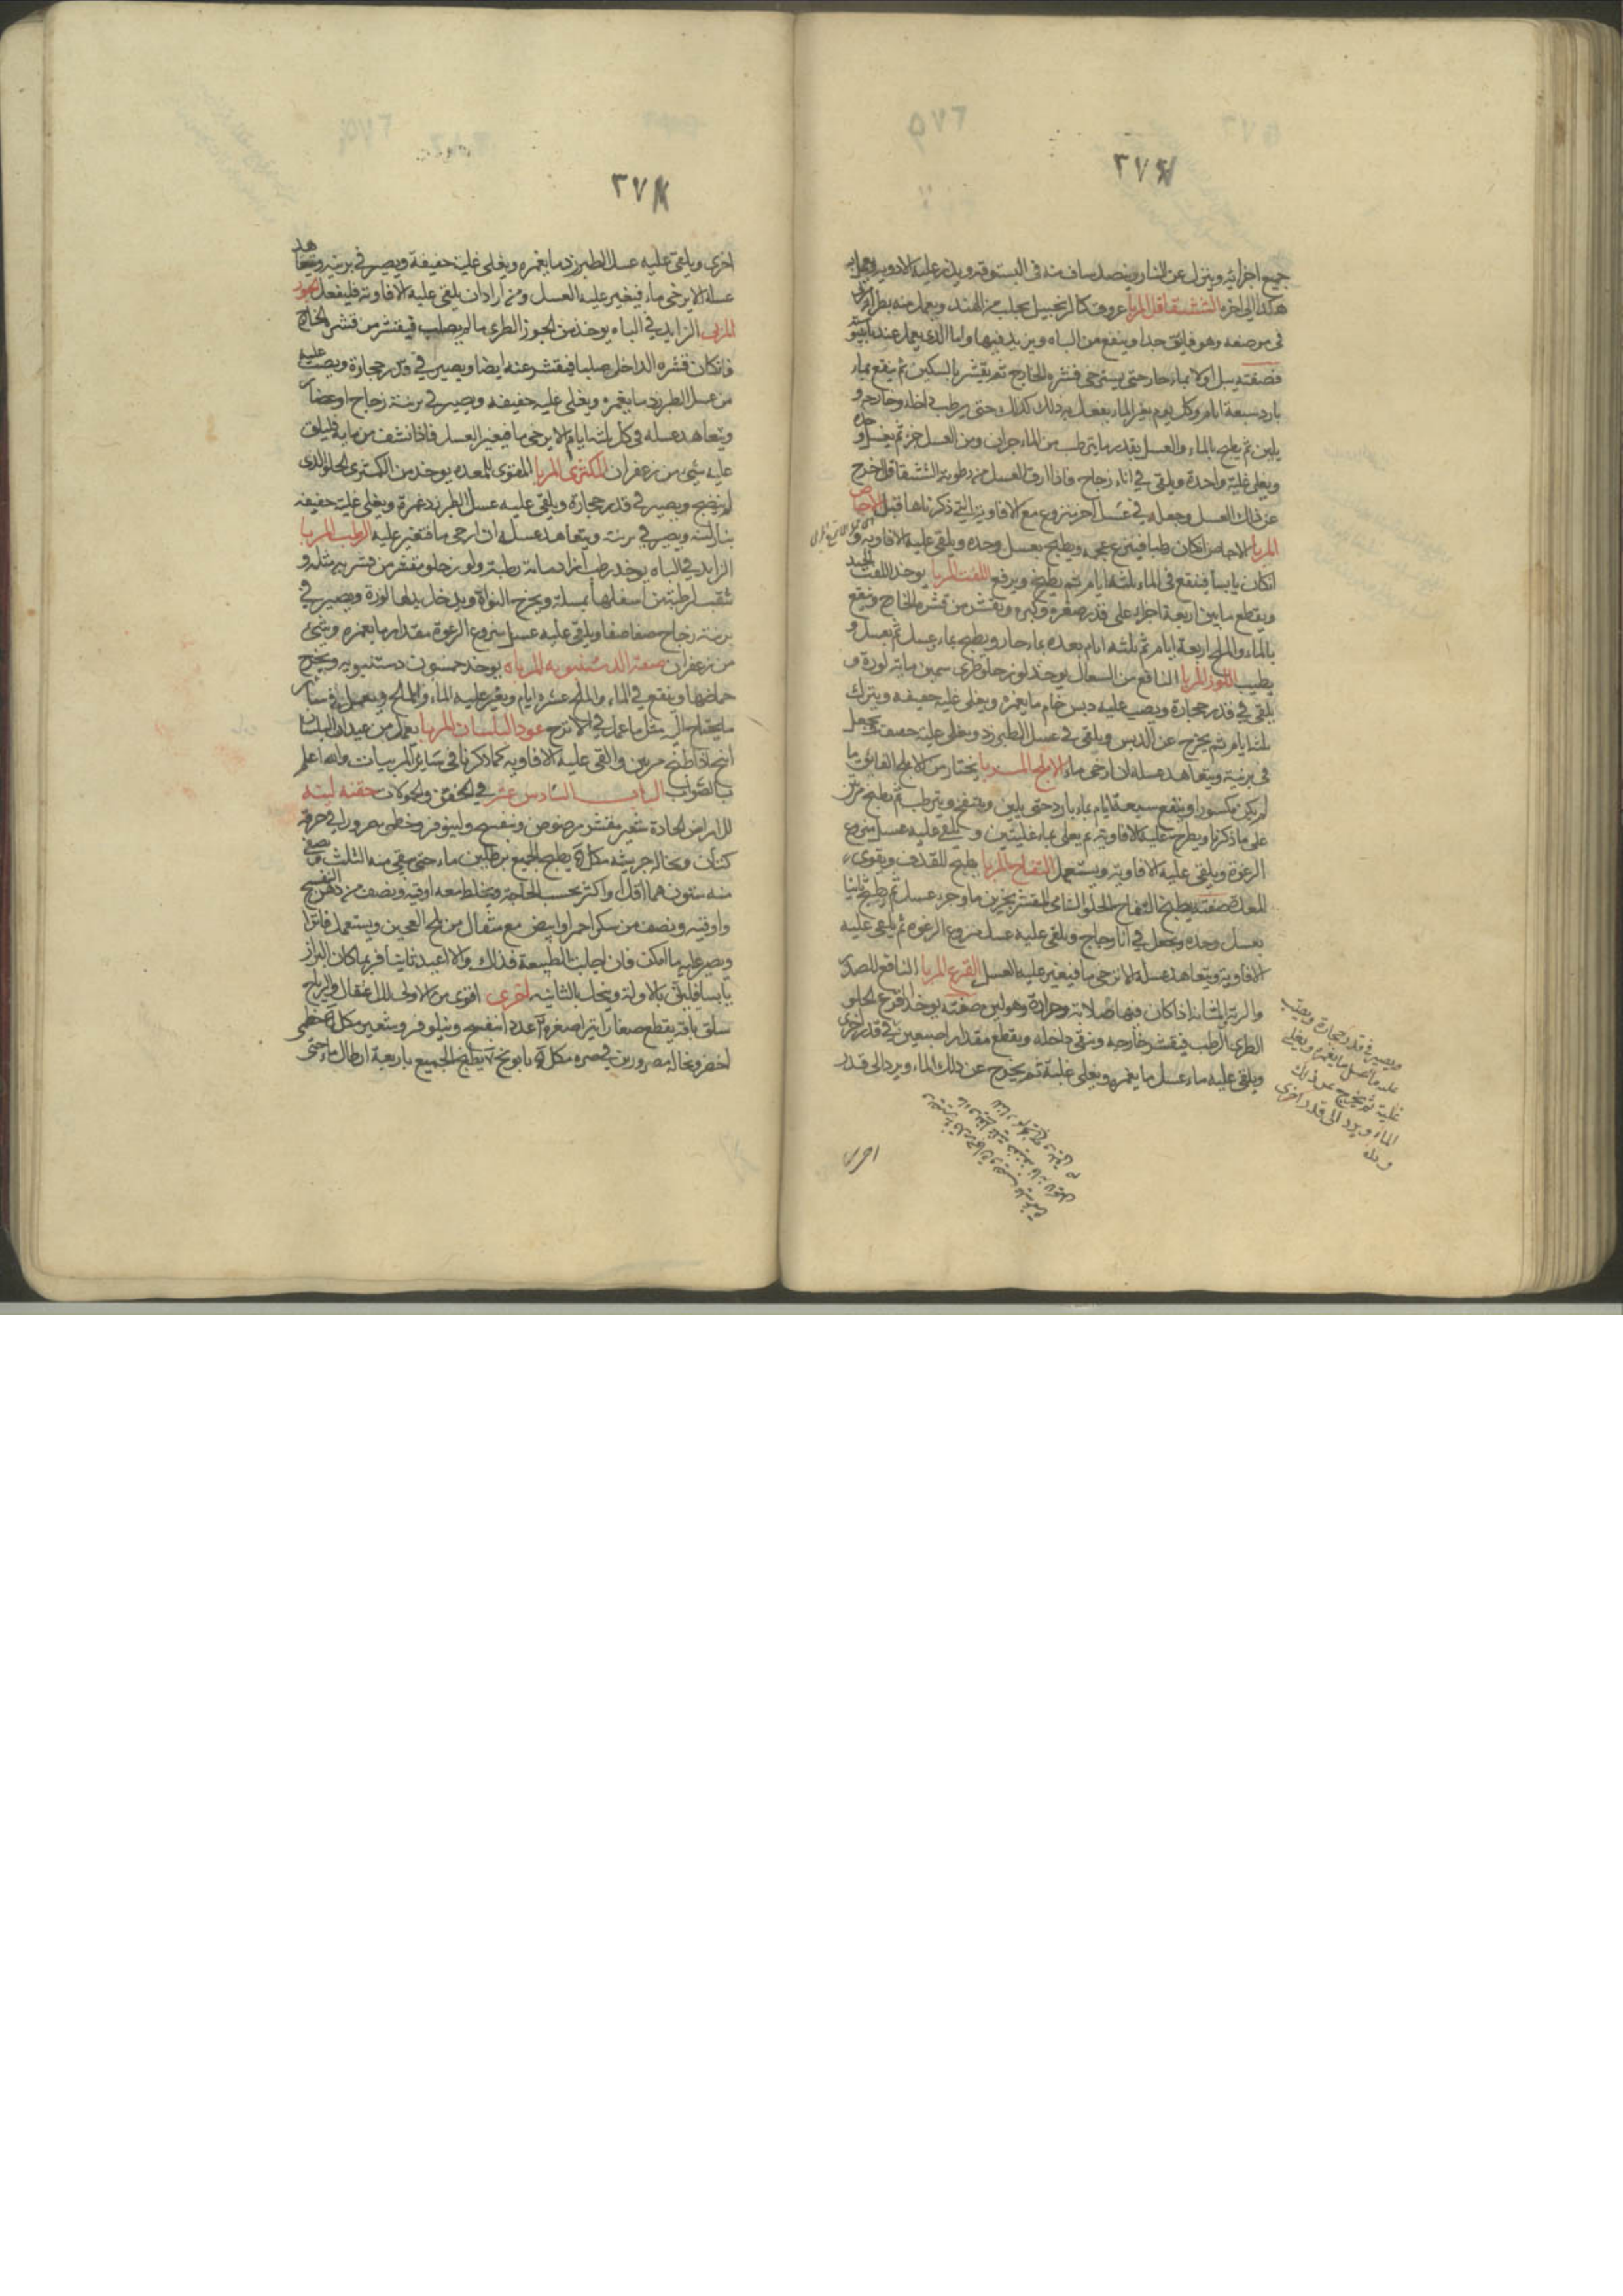 ٢٧٤
جميع اجزائه وينزل عن النار وينضد ساف منه في البستوقة ويذر عليه الادوية
هكذا الى اخره الششقاقل المربا عروق كالزنجبيل يجلب من الهند ويعمل منه
في موضعه وهو فايق جدا وينفع من الباه ويزيد فيها واما الذي يعمل عندنا
فصفته يبل اولا بماء حار حتى يسترخى قشره الخارج ثم يقشر بالسكين ثم ينقع بماء
بارد سبعة ايام وكل يوم يغير الماء يفعل به ذلك كذلك حتى يرطب داخله وخارجه و
يلين ثم يطبخ بالماء والعسل بقدر ما يترطب من الماء جزان ومن العسل جزء ثم بعسل وحده
ويغلى غلية واحدة ويلقى في اناء زجاج فاذا ارق العسل من رطوبة الششقاقل اخرج
عن ذلك العسل وجعل في عسل اخر منزوع مع الافاويه التي ذكرناها قبل الاجاص
المربا الاجاص ان كان رطبا فينزع عجمه ويطبخ بعسل وحده ويلقى عليه الافاويه و
ان كان يابسا فينقع في الماء ثلثة ايام ثم يطبخ ويرفع اللفت المربا يوخذ اللفت الجيد
ويقطع ما بين اربعة اجزاء على قدر صغره وكبره ويقشر من قشره الخارج وينقع
بالماء والملح اربعة ايام ثم ثلثة ايام بعده بماء حار ويطبخ بماء وعسل ثم بعسل و
يطيب اللوز المربا النافع من السعال يوخذ لوز حلو طرى سمين ماية لوزة و
يلقى في قدر حجارة ويصب عليه دبس خام ما يغمره ويغلى غلية خفيفة ويترك
ثلثة ايام ثم يخرج عن الدبس ويلقى في عسل الطبرزد ويغلى غلية خفيفة ويجعل
في برنية ويتعاهد عسله لان ارخى ماء الاملج المربا يختار من الاملج الفايق ما
لم يكن مكسورا وينقع سبعة ايام بماء بارد حتى يلين وينتفخ ويترطب ثم يطبخ مرتين
على ما ذكرنا ويطرح عليه الافاويه ثم يغلى بماء غليتين ويلقى عليه عسل منزوع
الرغوة ويلقى عليه الافاويه ويستعمل التفاح المربا يطبخ للقذف ويقوى
المعدة صفته يطبخ التفاح الحلو الشامى المقشر بجزين ماء وجزء عسل ثم يطبخ ثانيا
بعسل وحده ويجعل في اناء زجاج ويلقى عليه عسل منزوع الرغوة ثم يلقى عليه
الافاويه ويتعاهد عسله لان ارخى ماء فيغير عليه العسل القرع المربا النافع للصدر
والرية والمثانة اذا كان فيها صلابة وحرارة وهو لين صفته يوخذ القرع الحلو
الطرى الرطب فيقشر خارجه وينقى داخله ويقطع مقدار اصبعين في قدر اخرى
ويلقى عليه ماء عسل ما يغمره ويغلى غلية ثم يخرج عن ذلك الماء ويرد الى قدر
ويصير في قدر حجارة ويصب
عليه ماء عسل ما يغمره ويغلى
غلية ثم يخرج عن ذلك
الماء ويرد الى قدر اخرى
اخرى
٢٧٨
اخرى ويلقى عليه عسل الطبرزد ما يغمره ويغلى غلية خفيفة ويصير في برنية ويتعاهد
عسله لان ارخى ماء فيغير عليه العسل ومن اراد ان يلقى عليه الافاويه فليفعل الجوز
المربى الزايد في الباه يوخذ من الجوز الطرى ما لم يصلب فيقشر من قشره الخارج
فان كان قشره الداخل صلبا فيقشر عنه ايضا ويصير في قدر حجارة ويصب عليه
من عسل الطبرزد ما يغمره ويغلى غلية خفيفة ويصير في برنية زجاج او غضار
ويتعاهد عسله في كل ثلثة ايام لان ارخى ماء فيغير العسل فاذا نشف من مايه فليلق
عليه شئ من زعفران الكمثرى المربا المقوى للمعدة يوخذ من الكمثرى الحلو الذى
لم ينضج ويصير في قدر حجارة ويلقى عليه عسل الطبرزد غمرة ويغلى غلية خفيفة
بنار لينة ويصير في برنية ويتعاهد عسله ان ارخى ماء فتغير عليه الرطب المربا
الزايد في الباه يوخذ رطب ازاد ماية رطبة ولوز حلو مقشر من قشريه مثله و
تثقب الرطبة من اسفلها بمسلة ويخرج النواة ويدخل بدلها لوزة ويصير في
برنية زجاج صفا صفا ويلقى عليه عسل منزوع الرغوة مقدار ما يغمره وشئ
من زعفران صفة الدستنبويه المرباه يوخذ خمسون دستنبويه ويخرج
حماضها وينقع في الماء والملح عشرة ايام ويغير عليه الماء والملح ويعمل في سائر
ما يحتاج اليه مثل ما عمل في الاترج عود البلسان المربا يعمل من عيدان البلسان
اذا طبخ مرتين والقى عليه الافاويه كما ذكرنا في سائر المربيات والله اعلم
بالصواب الباب السادس عشر في الحقن والحمولات حقنه لينه
للامراض الحادة شعير مقشر مرضوض وبنفسج ونينوفر وخطمى مصرور في خرقة
كتان ونخالة جريشه مكل يطبخ الجميع برطلين ماء حتى يبقى منه الثلث ويصفى
منه ستون درهما اقل واكثر بحسب الحاجة ويخلط معه اوقيه ونصف من دهن البنفسج
واوقيه ونصف من سكر احمر او ابيض مع مثقال من ملح العجين ويستعمل فاترا
ويصبر عليه ما امكن فان اجابت الطبيعة فذلك والا اعيد ثانيا فربما كان البراز
يابسا فيلين بالاولة وينحل بالثانيه اخرى اقوى من الاولى للاعتقال والرياح
سلق باقه يقطع صغارا عدد بنفسج ونيلوفر وشعير مكل خطمى
اخضر ونخالة مصرورين في صره مكل بابونج يطبخ الجميع باربعة ارطال ماء حتى